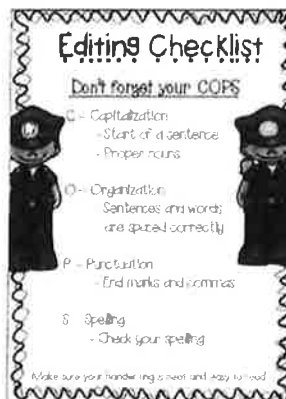 Editing Checklist
Don't forget your COPS
C - Capitalization
- Start of a sentence
- Proper nouns
O - Organization
Sentences and words
are spaced correctly
P - Punctuation
- End marks and commas
S - Spelling
- Check your spelling
Make sure your handwriting is neat and easy to read